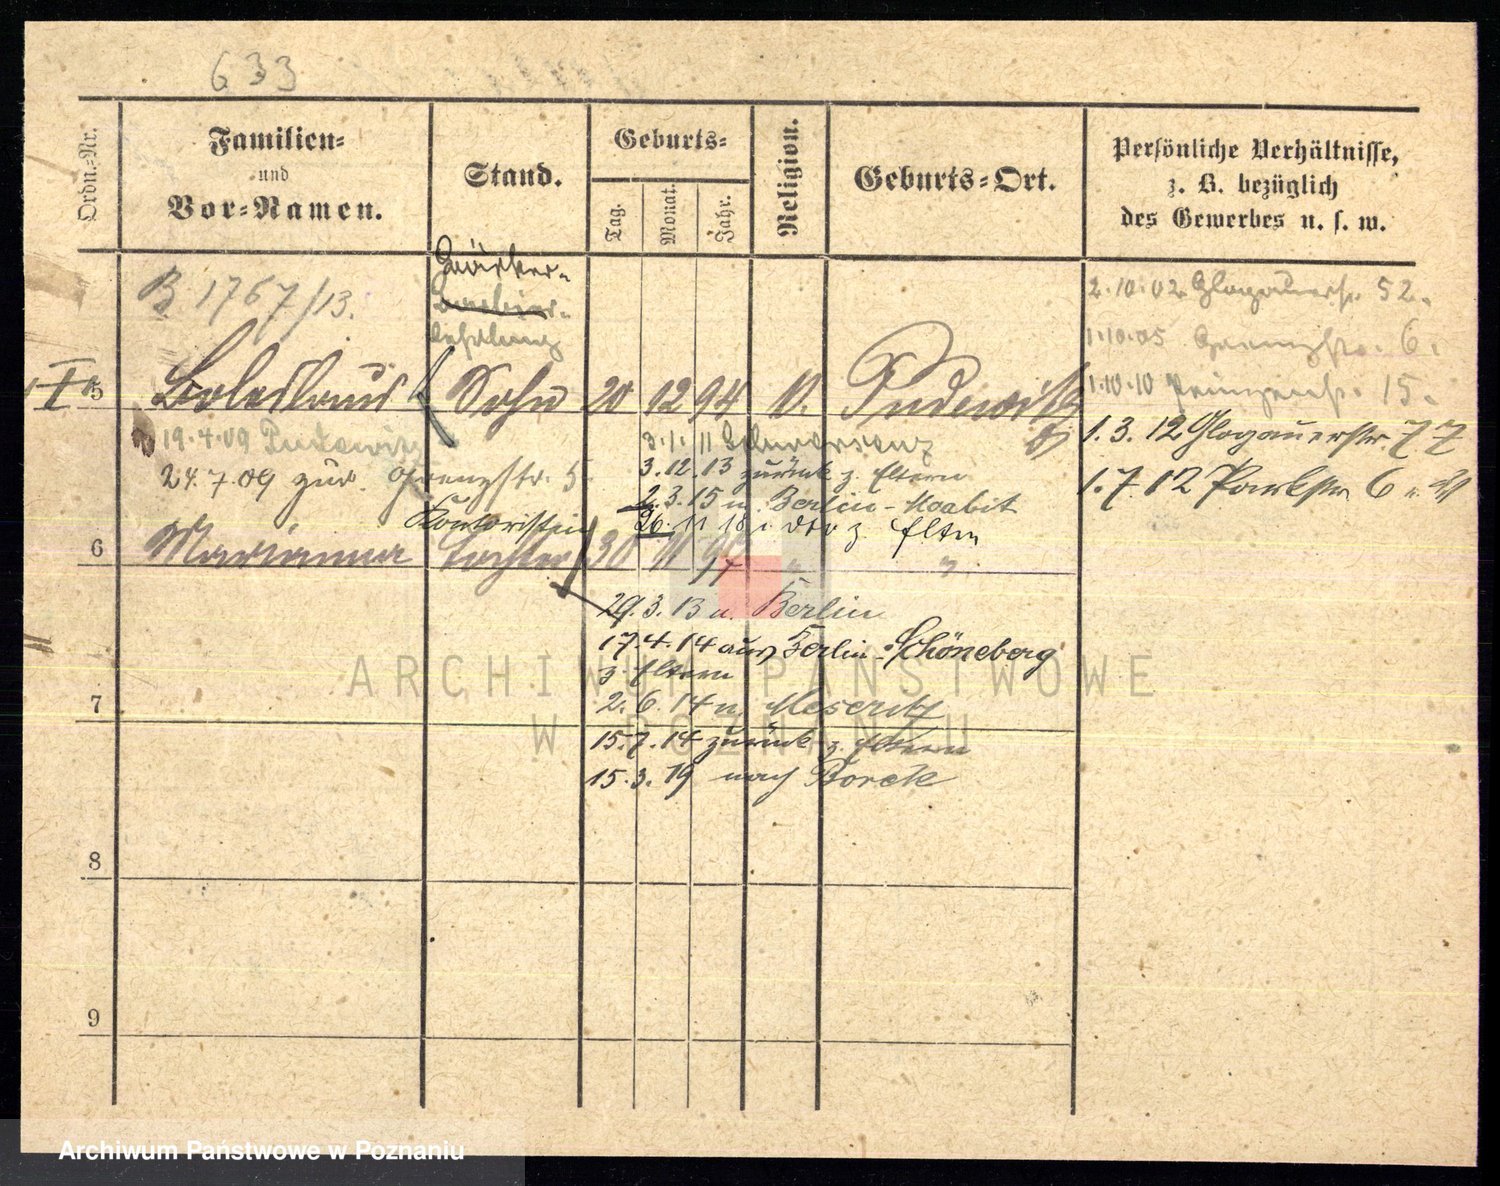 633
Ordn.-Nr.
Familien-
und
Vor-Namen.
Stand.
Geburts-
Tag.
Monat.
Jahr.
Religion.
Geburts-Ort.
Persönliche Verhältnisse,
z. B. bezüglich
des Gewerbes u. s. w.
B 1767/13.
2.10.02 Glogauerstr. 52.
1.10.05 Grenzstr. 6.
1.10.10 Prinzenstr. 15.
1.3.12 Glogauerstr. 77
1.7.12 Parkstr. 6
5 Boleslaus Sohn 20 12 94 Pudewitz
19.4.09 Pudewitz
24.7.09 zur. Grenzstr. 5.
3.1.11
3.12.13 zurück z. Eltern
2.3.15 n. Berlin-Moabit
26. 11 18 z. Eltern
Kontoristin
6 Marianna Tochter 30 11 97 " "
29.3.13 n. Berlin
17.4.14 aus Berlin-Schöneberg
z. Eltern
2.6.14 n. Meseritz
15.7.14 zurück z. Eltern
15.3.19 nach Borek
7
8
9
ARCHIWUM PAŃSTWOWE
W POZNANIU
Archiwum Państwowe w Poznaniu